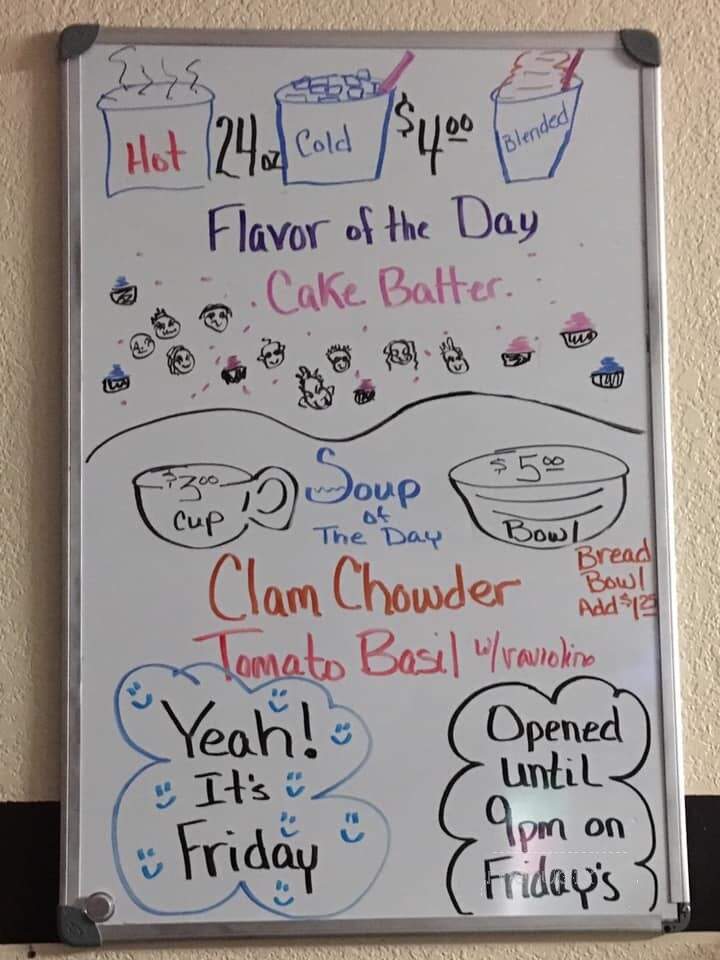 Hot 24oz Cold $4.00 Blended
Flavor of the Day
Cake Batter.
$3.00 Cup
Soup
of
The Day
$5.00 Bowl
Clam Chowder
Bread
Bowl
Add $1.25
Tomato Basil w/raviolino
Yeah!
It's
Friday
Opened
until
9pm on
Friday's